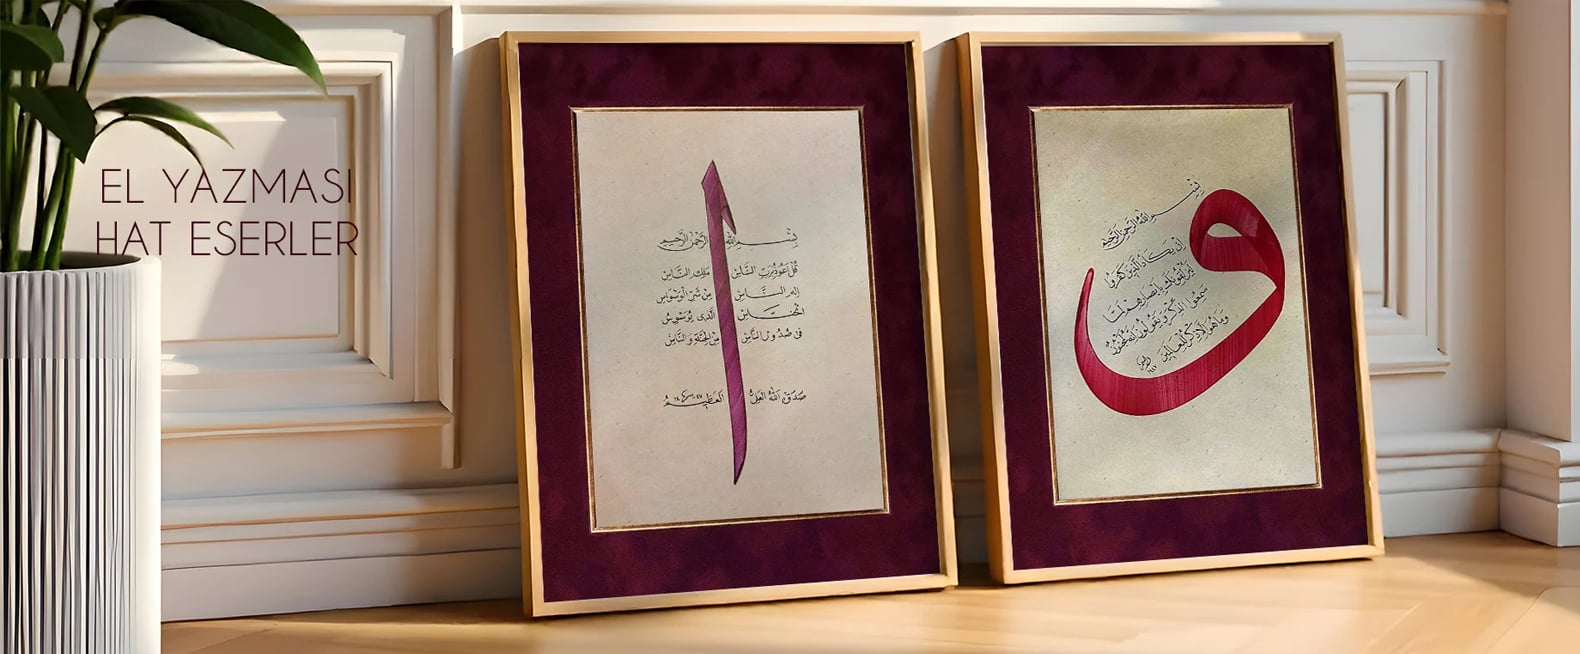 EL YAZMASI
HAT ESERLER
ا
بسم الله الرحمن الرحيم
قل اعوذ برب الناس ملك الناس
اله الناس من شر الوسواس
الخناس الذى يوسوس
فى صدور الناس من الجنة والناس
صدق الله العلى العظيم
و
بسم الله الرحمن الرحيم
ان يكاد الذين كفروا
ليزلقونك بابصارهم لما
سمعوا الذكر ويقولون انه لمجنون
وما هو الا ذكر للعالمين